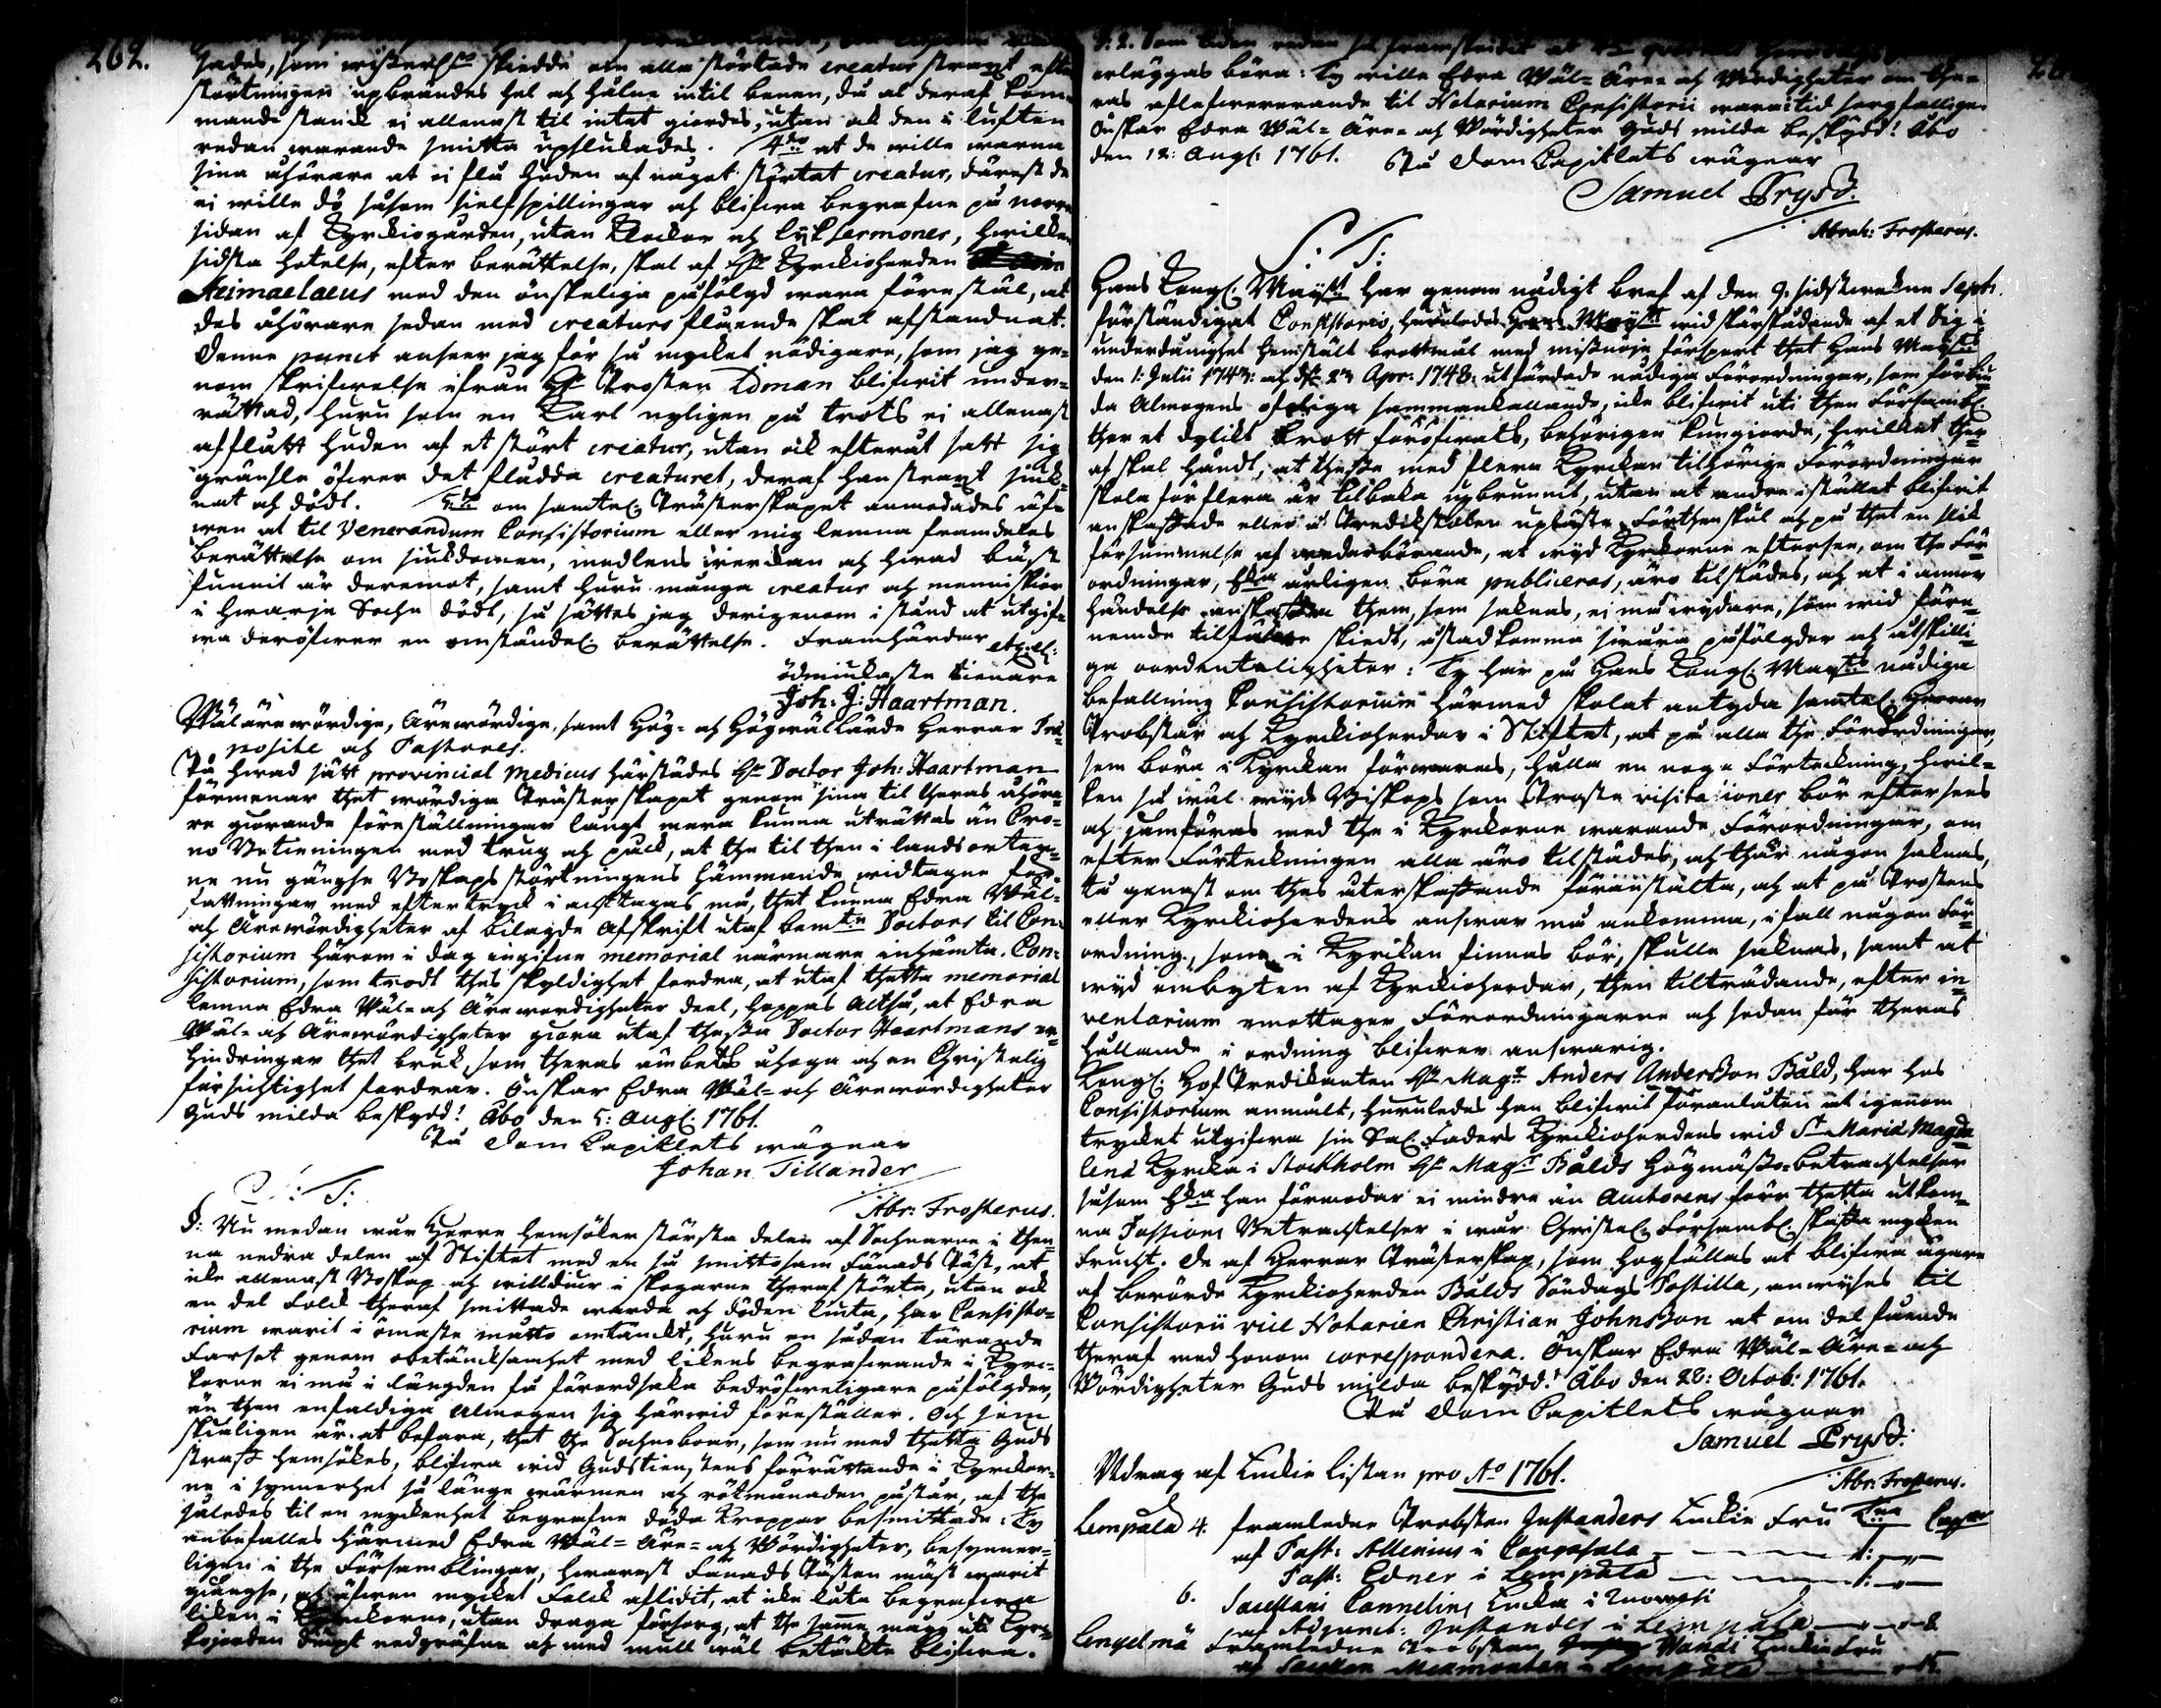 262.
hades, som wisserl:n skiedde om alla störtade creatur straxt efter
störtningen upbrändes hel och hålne intil benen, då at deraf kom-
mande stanck ei allenast til intet giordes, utan ock den i luften
redan warande smitta upslukades. 4:to at de wille warna
sina åhörare at ei flå huden af något störtat creatur, därest de
ei wille dö såsom sielfspillingar och blifwa begrafne på norra
sidan af Kyrckiogården, utan klockor och lijksermoner, hwilken
sidsta hotelse, efter berättelse, skal af H:r Kyrckioherden
Aeimaelaeus med den önskeliga påfölgd wara förestäl, at
des åhörare sedan med creaturs flående skal afståndnat.
Denne punct anseer jag för så mycket nödigare, som jag ge-
nom skrifwelse ifrån H:r Prosten Idman blifwit under-
rättad, huru som en Karl nyligen på trots ei allenast
afflått huden af et stört creatur, utan ock efteråt satt sig
gränsle öfwer det flådda creaturet, deraf han straxt siuk-
nat och dödt. 5:to om samtel: Prästerskapet anmodades äf-
wen at til Venerandum Consistorium eller mig lemna framdeles
berättelse om siukdomen, medlens wärckan och hwad bäst
funnit är deremot, samt huru många creatur och menniskior
i hwarje Sochn dödt, så sättes jag derigenom i stånd at utgif-
wa deröfwer en omständel: berättelse. Framhärdar etc: etc:
ödmiukaste tienare
Joh: J: Haartman.
Wälärewördige, Ärewördige, samt Hög- och Högwällärde Herrar Præ-
positi och Pastores.
På hwad sätt provincial Medicus härstädes H:r Doctor Joh: Haartman
förmenar thet wärdiga Prästerskapet genom sina til theras åhöra-
re giorande föreställningar långt mera kunna uträttas än Cro-
no Betieningen med trug och pück, at the til then i landsorter-
ne nu gängse Boskaps störtningens hämmande widtagne för-
fattningar med eftertryck i acht tagas må, thet kunna Edra Wäl-
och Ärewördigheter af bilagde Afskrift utaf bem:te Doctors til Con-
sistorium härom i dag ingifne memorial närmare inhämta. Con-
sistorium, som trodt thes skyldighet fordra, at utaf thetta memorial
lemna Edra Wäl- och Ärewördigheter deel, hoppas altså, at Edra
Wäl- och Ärewördigheter giöra utaf thessa Doctor Haartmans er-
hindringar thet bruk, som theras ämbets åhoga och en Christelig
försichtighet fordrar. Önskar Edra Wäl- och Ärewördigheter
Guds milda beskydd! Åbo den 5: Aug: 1761.
På Dom Capitlets wägnar
Johan Tillander
Abr: Frosterus.
S: T:
§: Nu medan wår Herre hemsöker största delen af Sochnarne i then-
na nedra delen af Stiftet med en så smittosam Fänads Påst, at
icke allenast Boskap och willdiur i skogarne theraf störta, utan ock
en del Folck theraf smittade warda och döden luta, har Consisto-
rium warit i ömaste måtto omtänckt, huru en sådan tärande
Farsot genom obetäncksamhet med likens begrafwande i Kyrc-
korne ei må i längden få förordsaka bedröfweligare påfölgder,
än then enfaldiga Almogen sig härwid föreställer. Och som
skiäligen är at befara, thet the Sochneboar, som nu med thetta Guds
straff hemsökes, blifwa wid Gudstienstens förrättande i Kyrckor-
ne i synnerhet så länge wärmen och rötmånaden påstår, af the
således til en myckenhet begrafne döda Kroppar besmittade: Ty
anbefalles härmed Edra Wäl- Äre- och Wördigheter, besynner-
ligen i the Församblingar, hwarest Fänads Påsten mäst warit
gängse, och äfwen mycket Folck aflidit, at icke låta begrafwa
liken i Kyrckorne, utan draga försorg, at the samma måge uti Kyrc-
kojorden diupt nedgräfne och med mull wäl betäckte blifwa.
§: 2. Som tiden redan så framskridit at
erläggas böra: Ty wille Edra Wäl- Äre- och Wördigheter om the-
ras aflefwererande til Notarium Consistorii wara i tid sorgfällige.
Önskar Edra Wäl- Äre- och Wördigheter Guds milda beskydd! Åbo
den 12: Aug: 1761. På Dom Capitlets wägnar
Samuel Pryss.
Abrah: Frosterus.
S: T:
Hans Kongl: Maij:tt har genom nådigt bref af den 9. sidstwekne Septr.
förständigat Consistorio, huruledes Hans Maij:tt wid skärskådande af et Sig i
underdånighet hemstält brottmål med missnöje försport thet Hans Maij:tts
den 1: Julii 1743: och df 23 Apr: 1748: utfärdade nådiga Förordningar, som förbiu-
da Almogens oloflige sammankallande, icke blifwit uti then Församl:
ther et dylikt brott föröfwats, behörigen kungiorde, hwilket ther-
af skal händt, at thesse med flera Kyrckan tilhörige Förordningar
skola för flera år tilbaka upbrunnit, utan at andre i stället blifwit
anskaffade eller å Predikstolen upläste. Förthenskul och på thet en slik
försummelse af wederbörande, at wid Kyrckorne eftersee, om the För-
ordningar, hka årligen böra publiceras, äro tilstädes, och at i annor
händelse anskaffa them, som saknas, ei må widare, som wid före-
nemde tilfälle skiedt, åstadkomma swåra påfölgder och åtskilli-
ga oordenteligheter: Ty har på Hans Kongl: Maij:tts nådiga
befallning Consistorium härmed skolat antyda samtel: Herrar
Probstar och Kyrckioherdar i Stiftet, at på alla the Förordningar,
som böra i Kyrckan förwaras, hålla en noga Förteckning, hwil-
ken så wäl wid Biskops som Prosta visitationer bör eftersees
och jämföras med the i Kyrckorne warande Förordningar, om
efter Förteckningen alla äro tilstädes, och thär någon saknas,
tå genast om thes återskaffande föranstalta, och at på Prostens
eller Kyrckioherdens answar må ankomma, i fall någon För-
ordning, som i Kyrckan finnas bör, skulle saknas, samt at
wid ombyten af Kyrckioherdar, then tilträdande, efter in-
ventarium emottager Förordningarne och sedan för theras
hållande i ordning blifwer answarig.
Kongl: Hof Predikanten H:r Mag:r Anders Andersson Båld, har hos
Consistorium anmält, huruledes han blifwit föranlåten at igenom
trycket utgifwa sin Sal: Faders Kyrckioherdens wid S:t Maria Magda-
lenæ Kyrcka i Stockholm H:r Mag:r Bålds Högmässo-betrachtelser
såsom hka han förmodar ei mindre än Auctorens förr thetta utkom-
na Passions Betrachtelser i wår Christel: Församl: skaffa mycken
frucht. De af Herrar Prästerskap, som hogfällas at blifwa ägare
af berörde Kyrckioherden Bålds Söndags Postilla, anwises til
Consistorii vice Notarien Christian Johnsson at om del fåande
theraf med honom correspondera. Önskar Edra Wäl- Äre- och
Wördigheter Guds milda beskydd! Åbo den 28: Octob: 1761.
På Dom Capitlets wägnar
Samuel Pryss.
Abr: Frosterus.
Utdrag af Enckie listan pro A:o 1761.
Lempälä 4. framledne Probsten Justanders Enckia Fru
af Past: Allenius i Cangasala
Past: Edner i Lempälä
6. Sacellani Cannelini Encka i
af Adjunct: Justander i Lempälä
Lengelmä framledne Probsten Wandi Enckia Fru
af i Lempälä